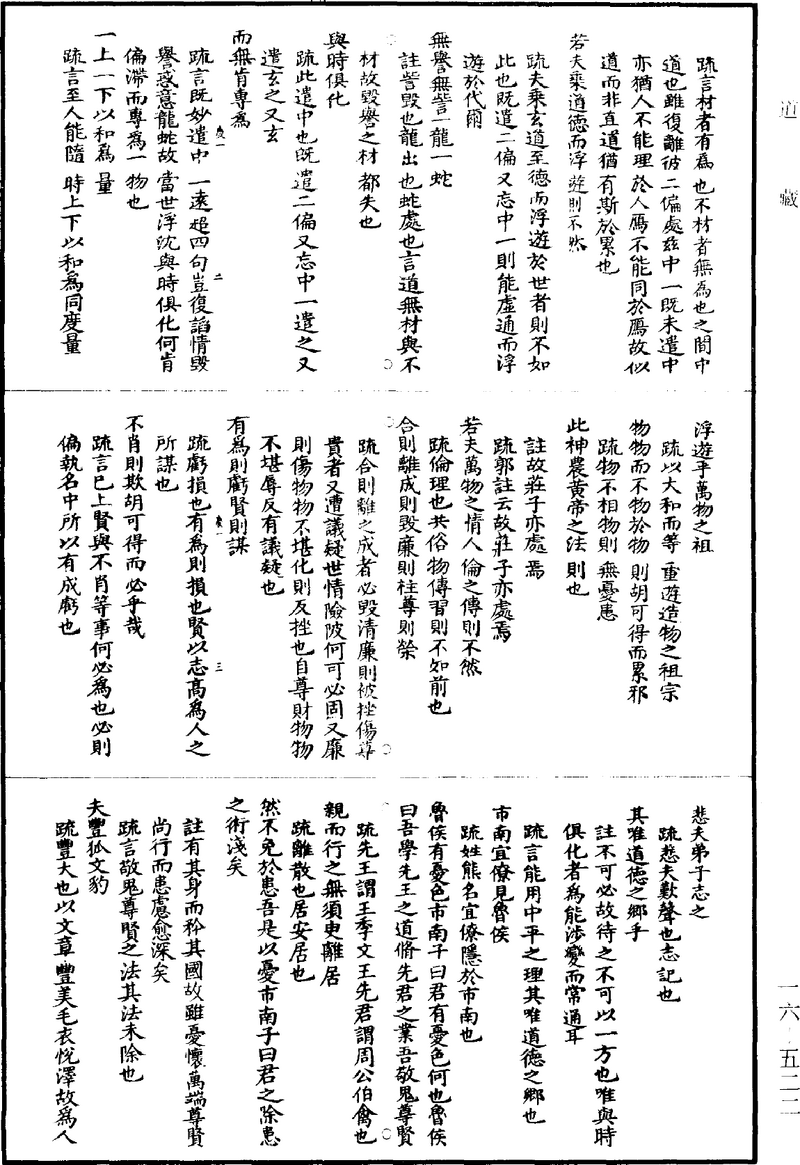 道藏
一六·五二二
疏言材者有爲也不材者無爲也之間中
道也雖復離彼二偏處茲中一既未遣中
亦猶人不能理於人鴈不能同於鴈故似
道而非真道猶有斯於累也
若夫乘道德而浮遊則不然
疏夫乘玄道至德而浮遊於世者則不如
此也既遣二偏又忘中一則能虛通而浮
遊於代爾
無譽無訾一龍一蛇
註訾毀也龍出也蛇處也言道無材與不
材故毀譽之材都失也
與時俱化
疏此遣中也既遣二偏又忘中一遣之又
遣玄之又玄
而無肯專爲
疏言既妙遣中一遠超四句豈復諂情毀
譽惑意龍蛇故當世浮沈與時俱化何肯
偏滯而專爲一物也
一上一下以和爲量
疏言至人能隨時上下以和爲同度量
浮遊乎萬物之祖
疏以大和而等量遊造物之祖宗
物物而不物於物則胡可得而累邪
疏物不相物則無憂患
此神農黃帝之法則也
註故莊子亦處焉
疏郭註云故莊子亦處焉
若夫萬物之情人倫之傳則不然
疏倫理也共俗物傳習則不如前也
合則離成則毀廉則挫尊則縈
疏合則離之成者必毀清廉則被挫傷尊
貴者又遭議疑世情險陂何可必固又廉
則傷物物不堪化則反挫也自尊財物物
不堪辱反有議疑也
有爲則虧賢則謀
疏虧損也有爲則損也賢以志高爲人之
所謀也
不肖則欺胡可得而必乎哉
疏言已上賢與不肖等事何必爲也必則
偏執名中所以有成虧也
悲夫弟子志之
疏悲夫歎聲也志記也
其唯道德之鄉乎
註不可必故待之不可以一方也唯與時
俱化者爲能涉變而常通耳
疏言能用中平之理其唯道德之鄉也
市南宜僚見魯侯
疏姓熊名宜僚隱於市南也
魯侯有憂色市南子曰君有憂色何也魯侯
曰吾學先王之道脩先君之業吾敬鬼尊賢
疏先王謂王季文王先君謂周公伯禽也
親而行之無須臾離居
疏離散也居安居也
然不免於患吾是以憂市南子曰君之除患
之術淺矣
註有其身而矜其國故雖憂懷萬端尊賢
尚行而患慮愈深矣
疏言敬鬼尊賢之法其法未除也
夫豐狐文豹
疏豐大也以文章豐美毛衣悅澤故爲人